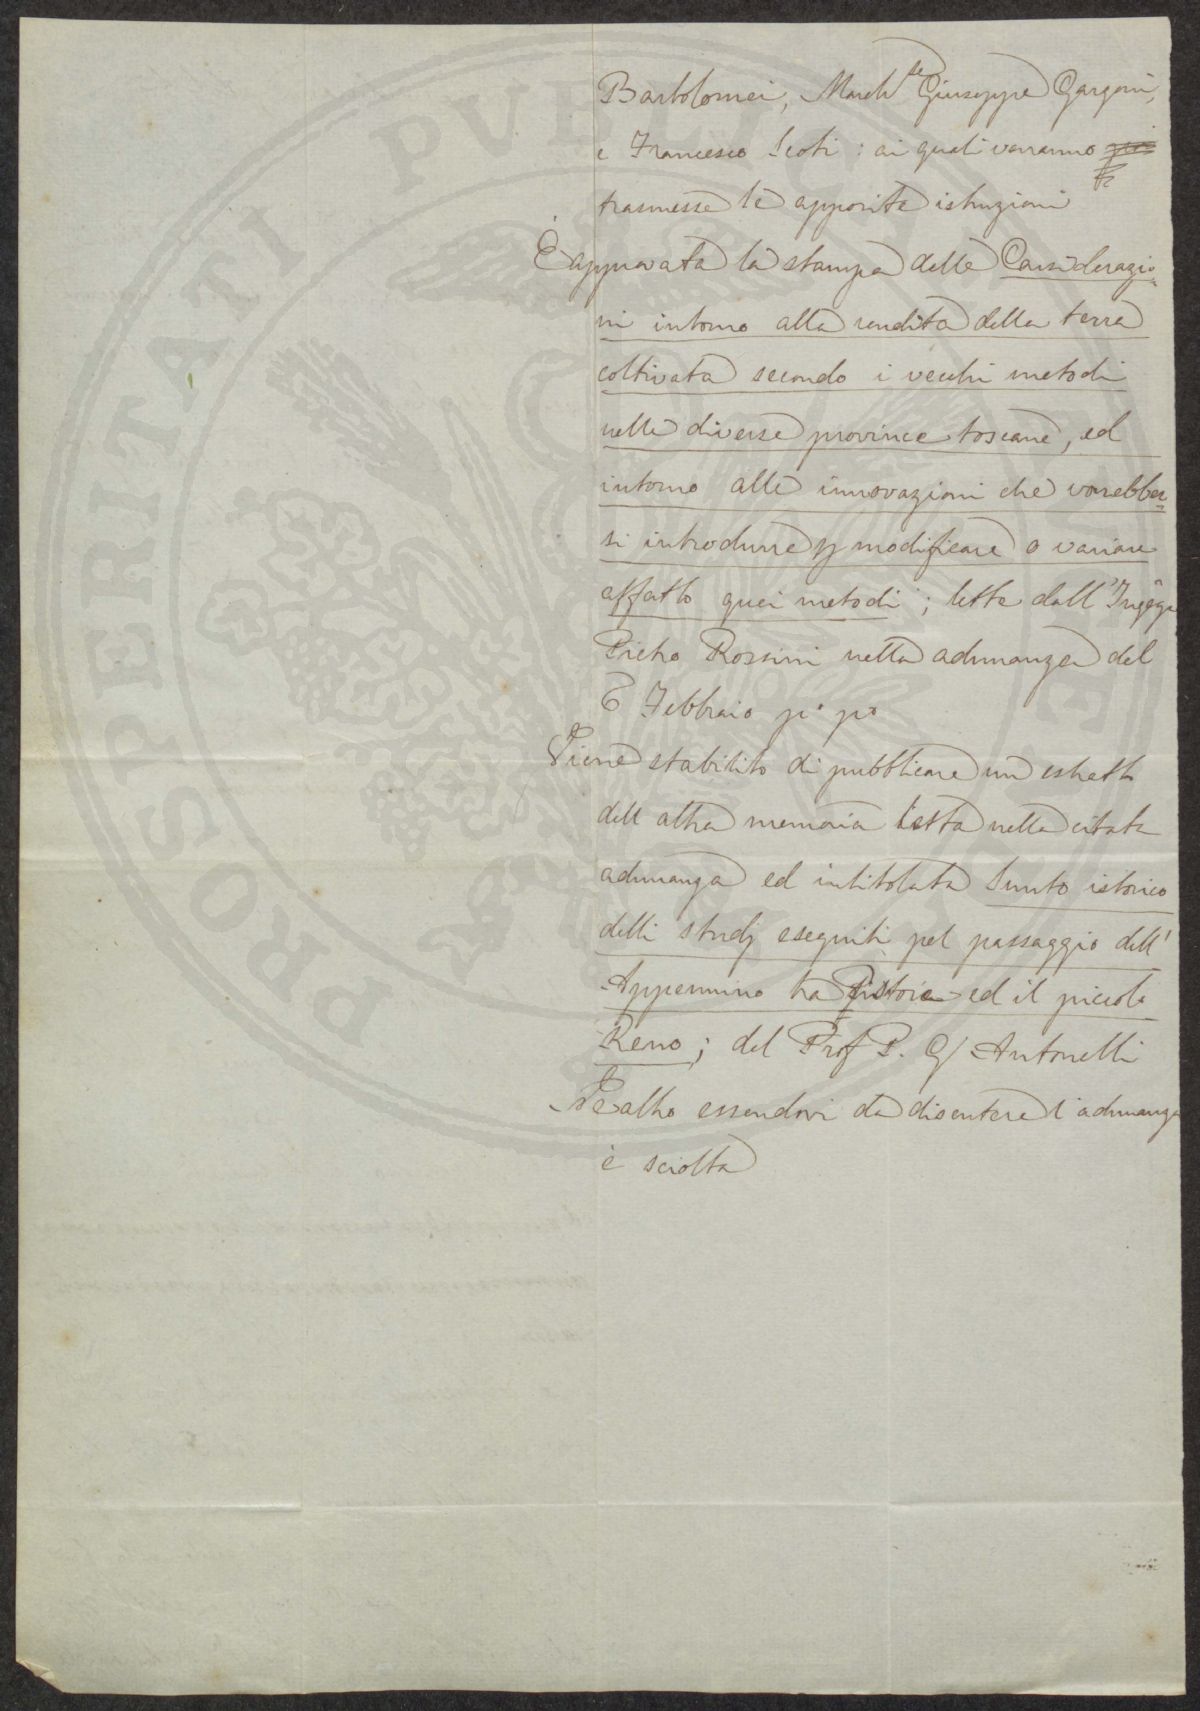 Bartolomei, March.se Giuseppe Garzoni,
e Francesco Scoti: ai quali verranno
trasmesse le apposite istruzioni
È approvata la stampa delle Considerazio=
ni intorno alla rendita della terra
coltivata secondo i vecchi metodi
nelle diverse province toscane, ed
intorno alle innovazioni che vorrebber=
si introdurre p modificare o variare
affatto quei metodi; lette dall'Ingeg.e
Pietro Rossini nella adunanza del
6 Febbraio p.o p.o
Viene stabilito di pubblicare un estratto
dell altra memoria letta nella citata
adunanza ed intitolata Sunto istorico
delli studj eseguiti pel passaggio dell'
Appennino tra Pistoia ed il piccolo
Reno; del Prof P. G Antonelli
Ne altro essendovi da discutere l'adunanza
è sciolta
PROSPERITATI PVBLICAE